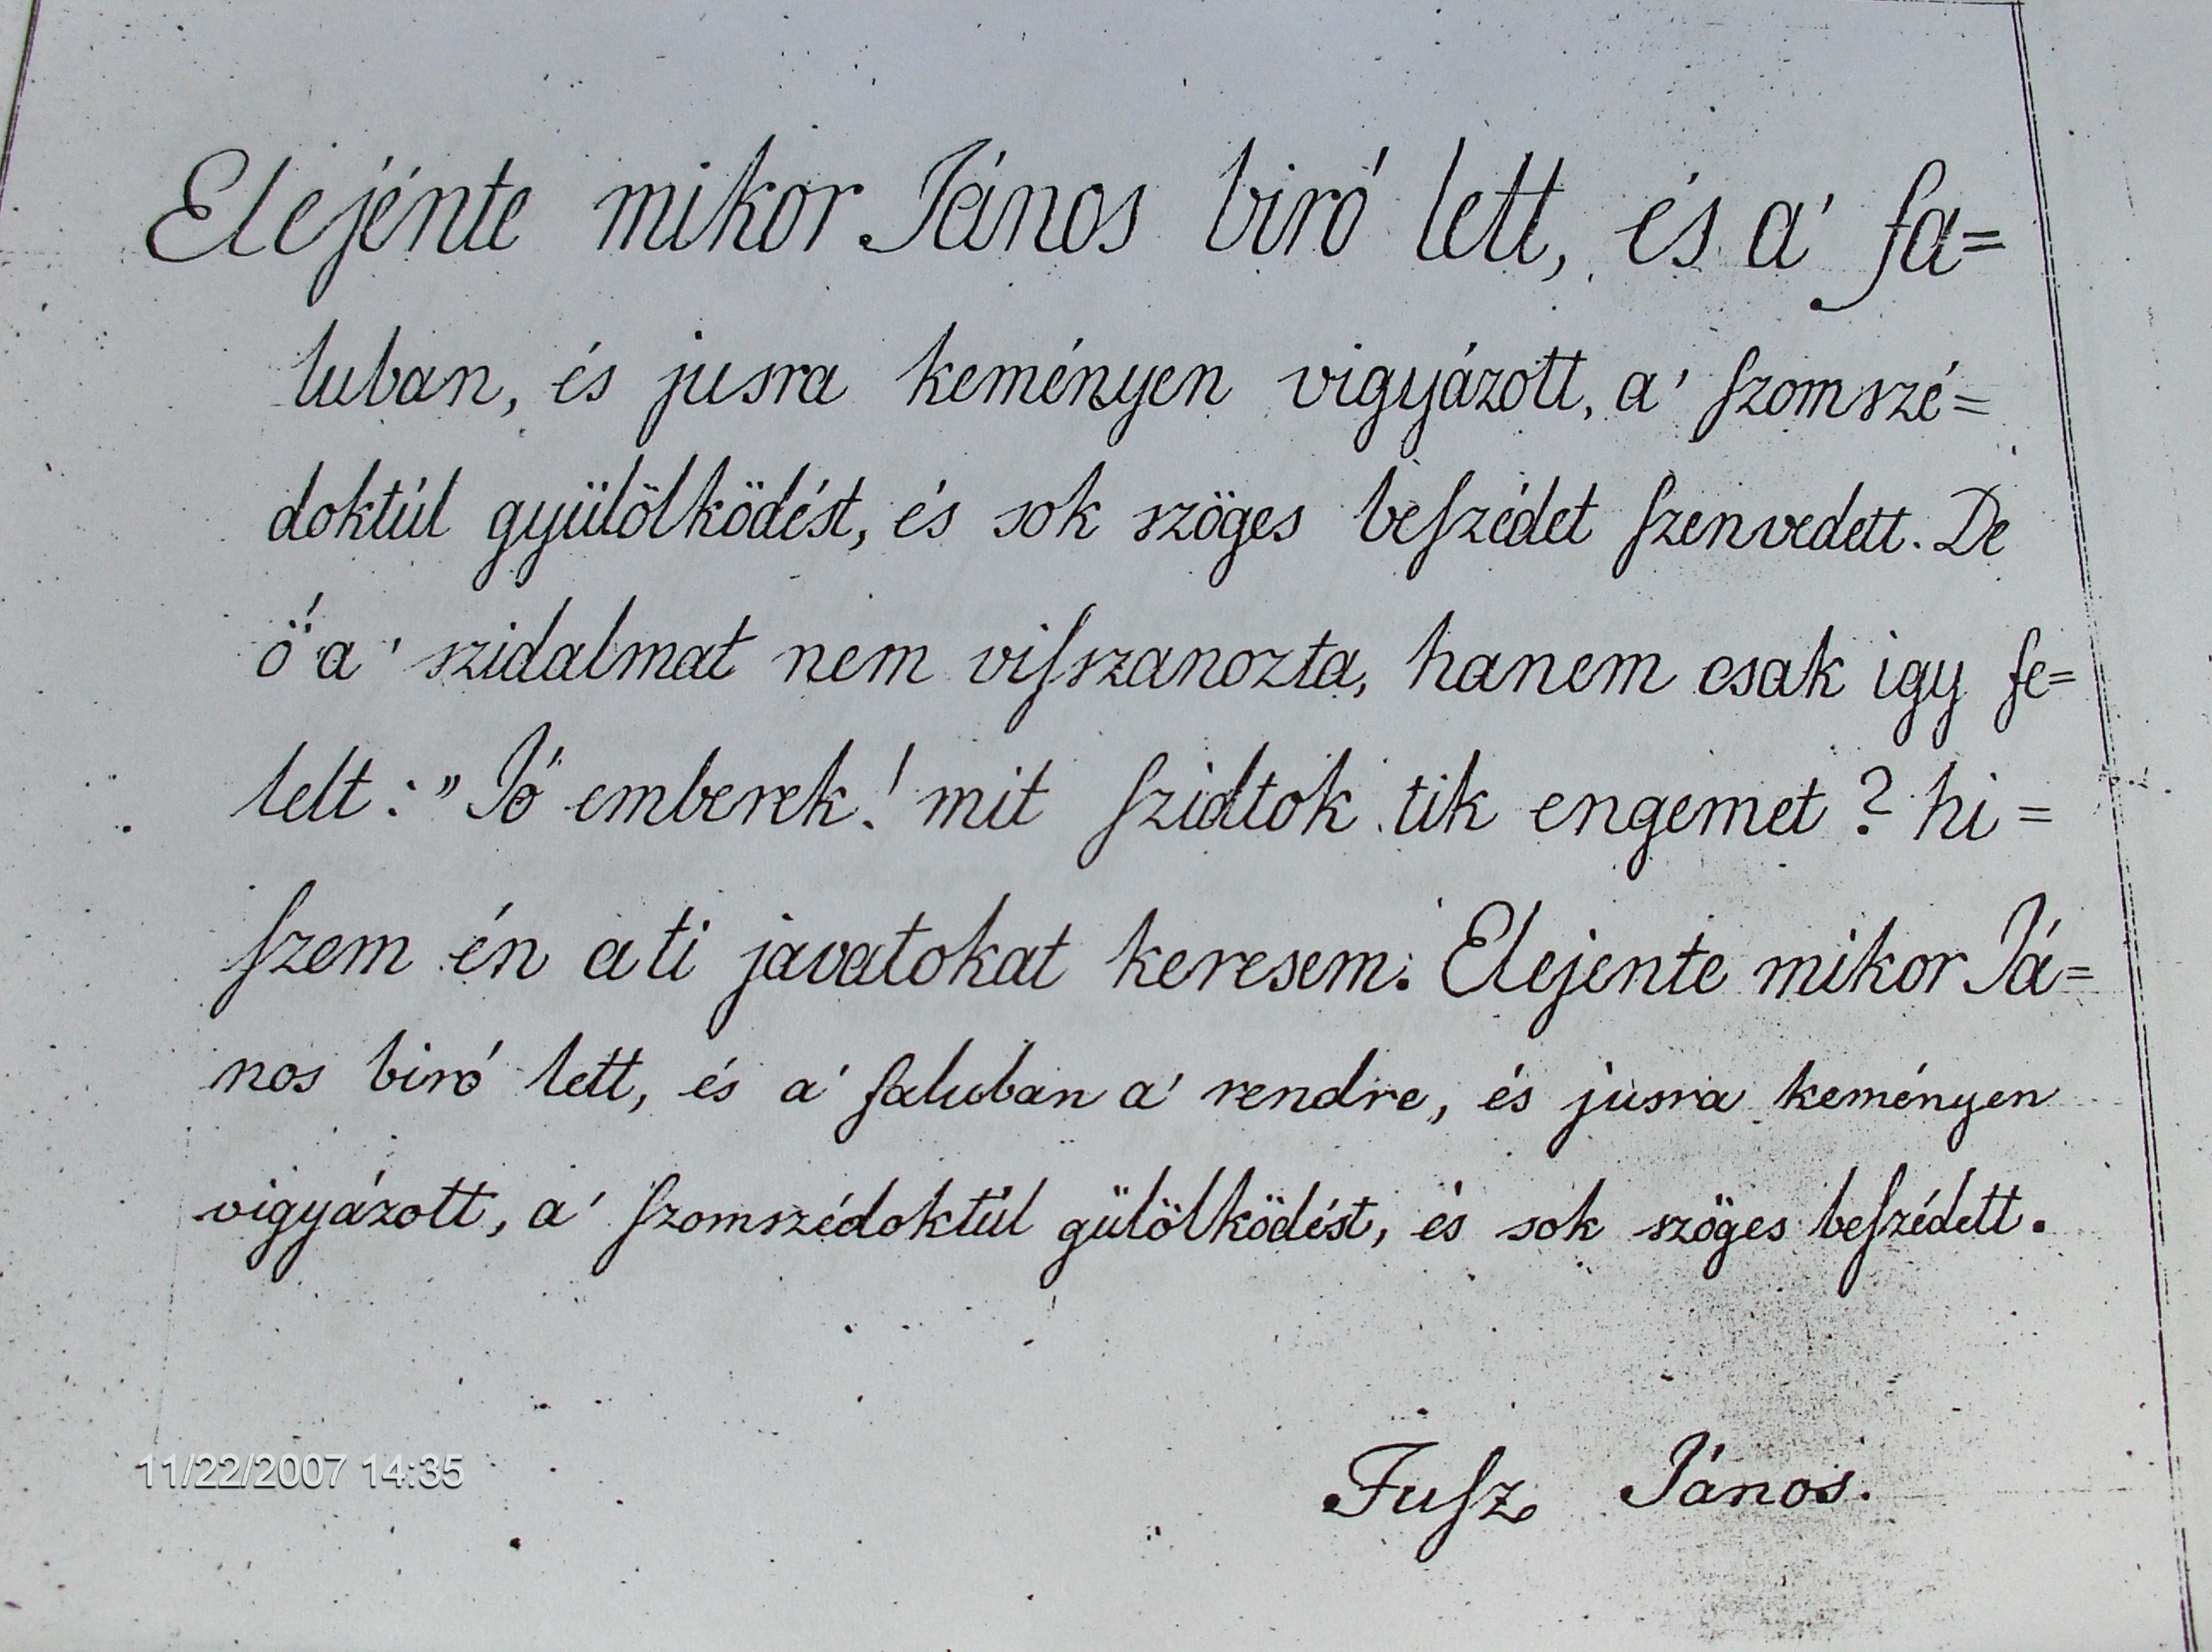 Elejénte mikor János biró lett, és a' fa=
luban, és jusra keményen vigyázott, a' ſzomszé=
doktúl gyülölködést, és sok szöges beſzédet ſzenvedett. De
ő a' szidalmat nem viſszanozta, hanem csak igy fe=
lelt: „Jó emberek! mit ſzidtok tik engemet? hi=
ſzem én a ti javatokat keresem: Elejente mikor Já=
nos biró lett, és a' faluban a' rendre, és jusra keményen
vigyázott, a' ſzomszédoktúl gülölködést, és sok szöges beſzédett.
Fuſz János.
11/22/2007 14:35